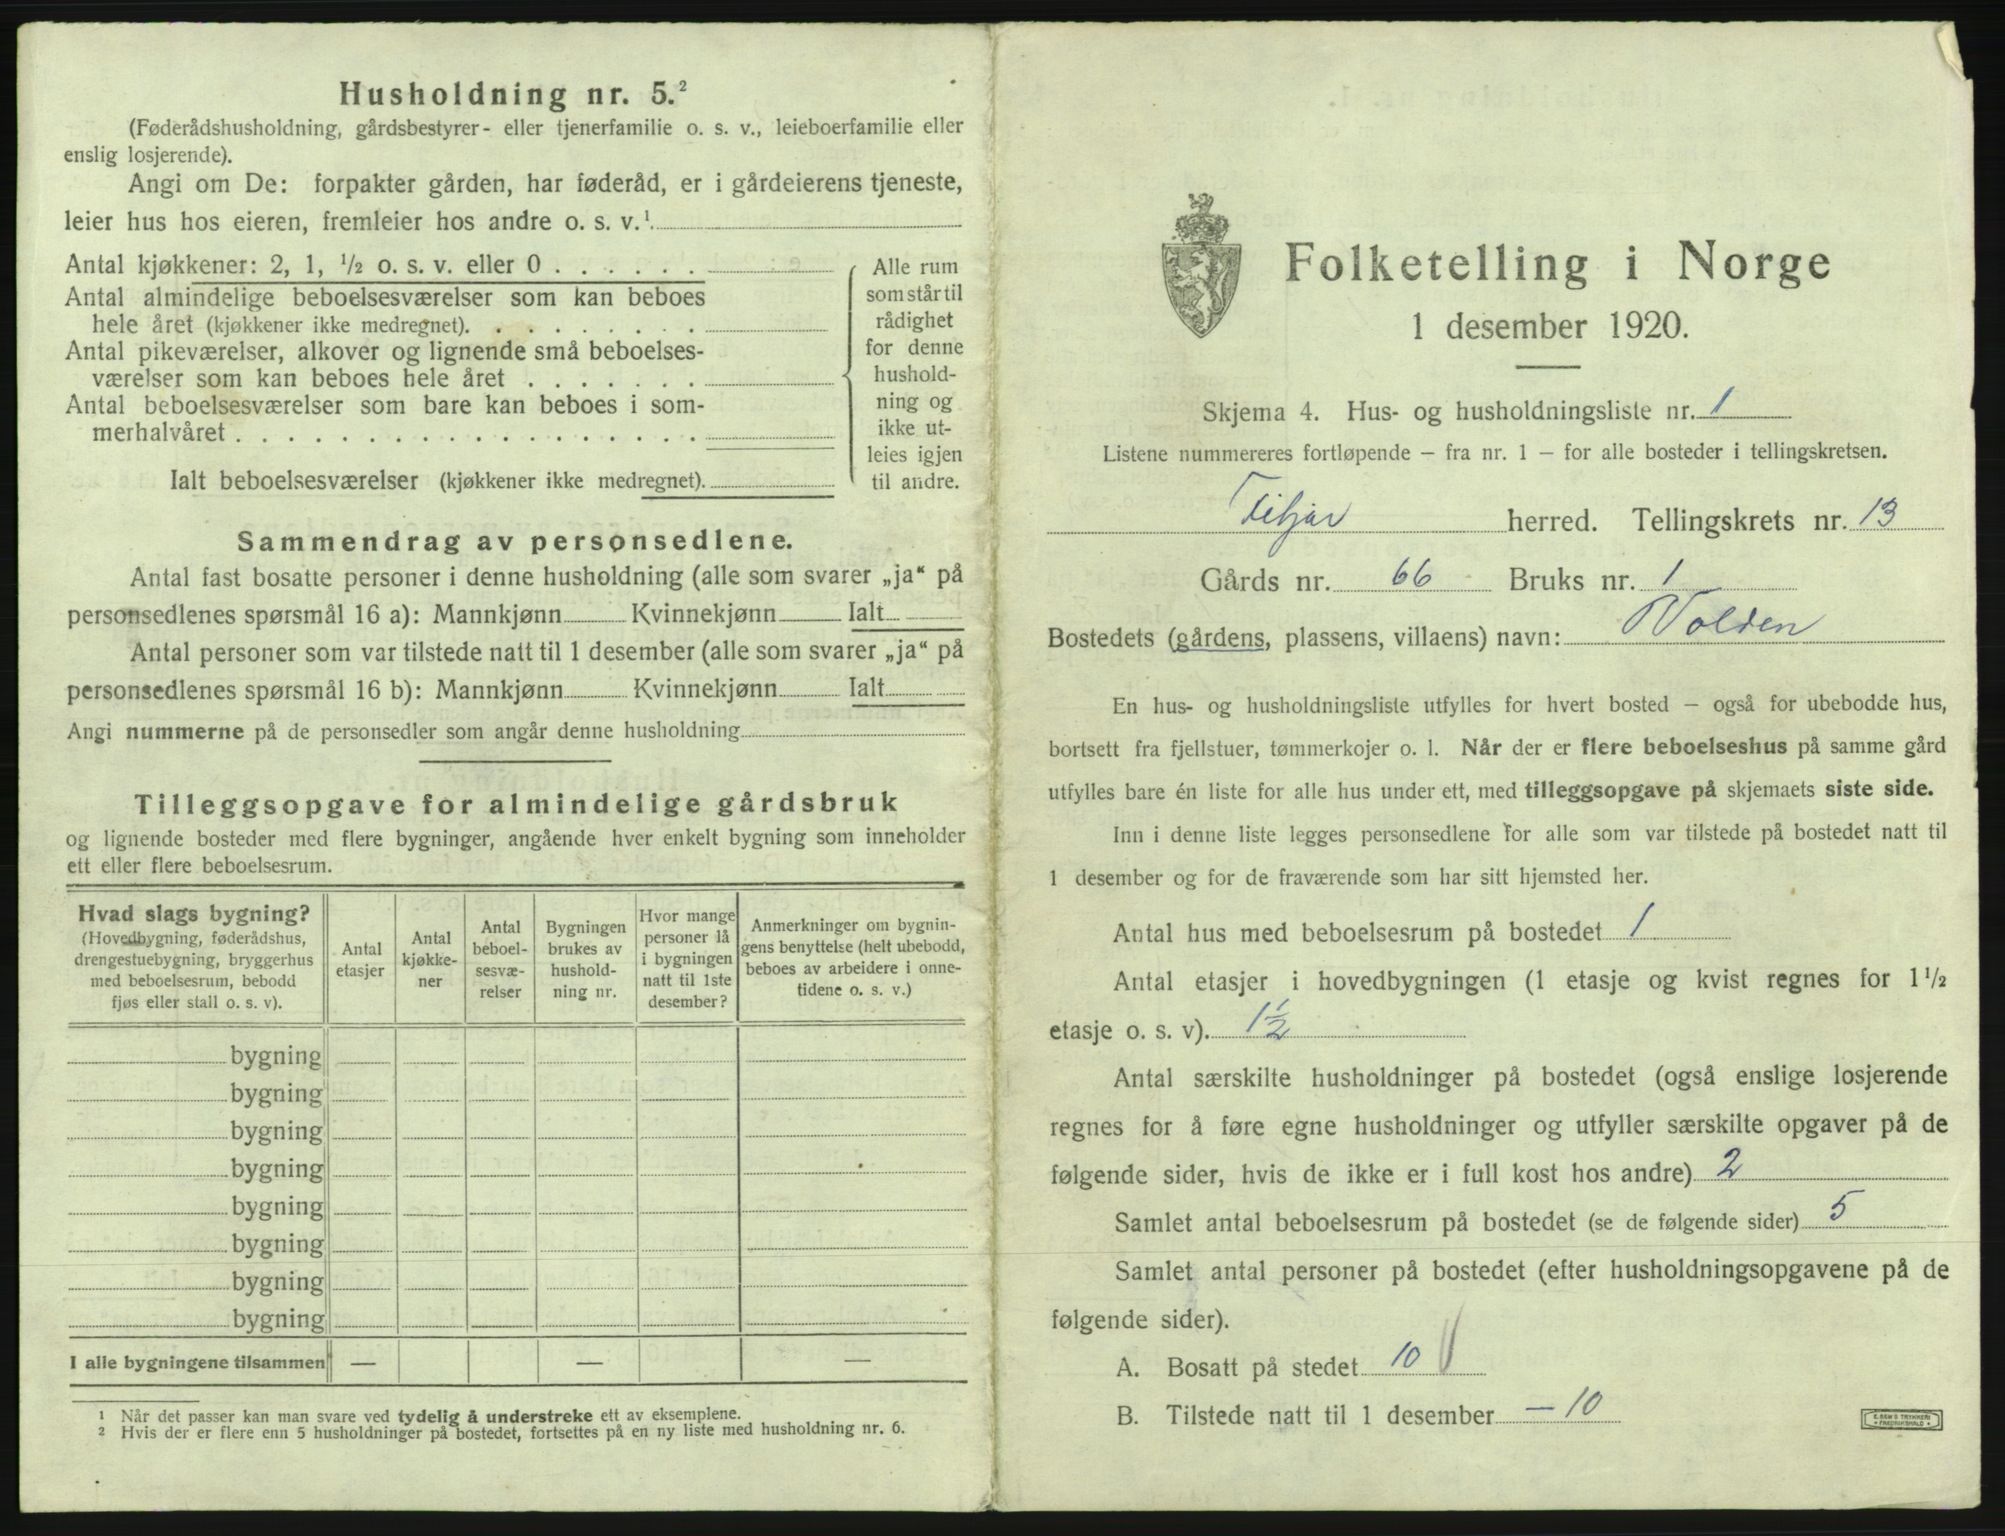 Husholdning nr. 5.²
(Føderådshusholdning, gårdsbestyrer- eller tjenerfamilie o. s. v., leieboerfamilie eller
enslig losjerende).
Angi om De: forpakter gården, har føderåd, er i gårdeierens tjeneste,
leier hus hos eieren, fremleier hos andre o. s. v.¹
Antal kjøkkener: 2, 1, ¹/₂ o. s. v. eller 0
Antal almindelige beboelsesværelser som kan beboes
hele året (kjøkkener ikke medregnet).
Antal pikeværelser, alkover og lignende små beboelses-
værelser som kan beboes hele året
Antal beboelsesværelser som bare kan beboes i som-
merhalvåret
Ialt beboelsesværelser (kjøkkener ikke medregnet).
Alle rum
som står til
rådighet
for denne
hushold-
ning og
ikke ut-
leies igjen
til andre.
Sammendrag av personsedlene.
Antal fast bosatte personer i denne husholdning (alle som svarer „ja“ på
personsedlenes spørsmål 16 a): Mannkjønn Kvinnekjønn Ialt
Antal personer som var tilstede natt til 1 desember (alle som svarer „ja“ på
personsedlenes spørsmål 16 b): Mannkjønn Kvinnekjønn Ialt
Angi nummerne på de personsedler som angår denne husholdning
Tilleggsopgave for almindelige gårdsbruk
og lignende bosteder med flere bygninger, angående hver enkelt bygning som inneholder
ett eller flere beboelsesrum.
Hvad slags bygning?
(Hovedbygning, føderådshus,
drengestuebygning, bryggerhus
med beboelsesrum, bebodd
fjøs eller stall o. s. v).
Antal
etasjer
Antal
kjøkke-
ner
Antal
beboel-
sesvæ-
relser
Bygningen
brukes av
hushold-
ning nr.
Hvor mange
personer lå
i bygningen
natt til 1ste
desember?
Anmerkninger om bygnin-
gens benyttelse (helt ubebodd,
beboes av arbeidere i onne-
tidene o. s. v.)
bygning
bygning
bygning
bygning
bygning
bygning
bygning
bygning
I alle bygningene tilsammen — — —
¹ Når det passer kan man svare ved tydelig å understreke ett av eksemplene.
² Hvis der er flere enn 5 husholdninger på bostedet, fortsettes på en ny liste med husholdning nr. 6.
Folketelling i Norge
1 desember 1920.
Skjema 4. Hus- og husholdningsliste nr. 1
Listene nummereres fortløpende – fra nr. 1 – for alle bosteder i tellingskretsen.
Fitjar herred. Tellingskrets nr. 13
Gårds nr. 66 Bruks nr. 1
Bostedets (gårdens, plassens, villaens) navn: Volden
En hus- og husholdningsliste utfylles for hvert bosted – også for ubebodde hus,
bortsett fra fjellstuer, tømmerkojer o. l. Når der er flere beboelseshus på samme gård
utfylles bare én liste for alle hus under ett, med tilleggsopgave på skjemaets siste side.
Inn i denne liste legges personsedlene for alle som var tilstede på bostedet natt til
1 desember og for de fraværende som har sitt hjemsted her.
Antal hus med beboelsesrum på bostedet 1
Antal etasjer i hovedbygningen (1 etasje og kvist regnes for 1 ¹/₂
etasje o. s. v). 1 ½
Antal særskilte husholdninger på bostedet (også enslige losjerende
regnes for å føre egne husholdninger og utfyller særskilte opgaver på de
følgende sider, hvis de ikke er i full kost hos andre) 2
Samlet antal beboelsesrum på bostedet (se de følgende sider) 5
Samlet antal personer på bostedet (efter husholdningsopgavene på de
følgende sider).
A. Bosatt på stedet 10
B. Tilstede natt til 1 desember — 10